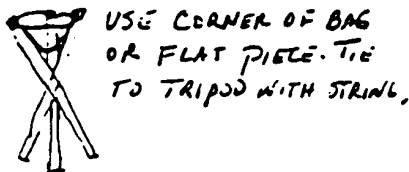 USE CORNER OF BAG
OR FLAT PIECE. TIE
TO TRIPOD WITH STRING.